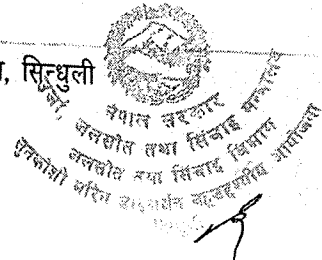 , सिन्धुली
नेपाल सरकार
ऊर्जा, जलस्रोत तथा सिंचाइ मन्त्रालय
जलस्रोत तथा सिंचाइ विभाग
सुनकोशी मरिन डाइभर्सन बहुउद्देश्यीय आयोजना